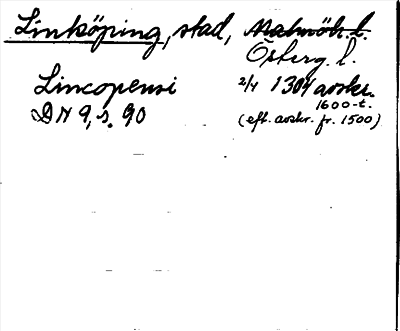 Linköping, stad, Malmöh. l.
Österg. l.
Lincopensi 2/4 1304 avskr.
1600-t.
DN 9, s. 90 (eft. avskr. fr. 1500)